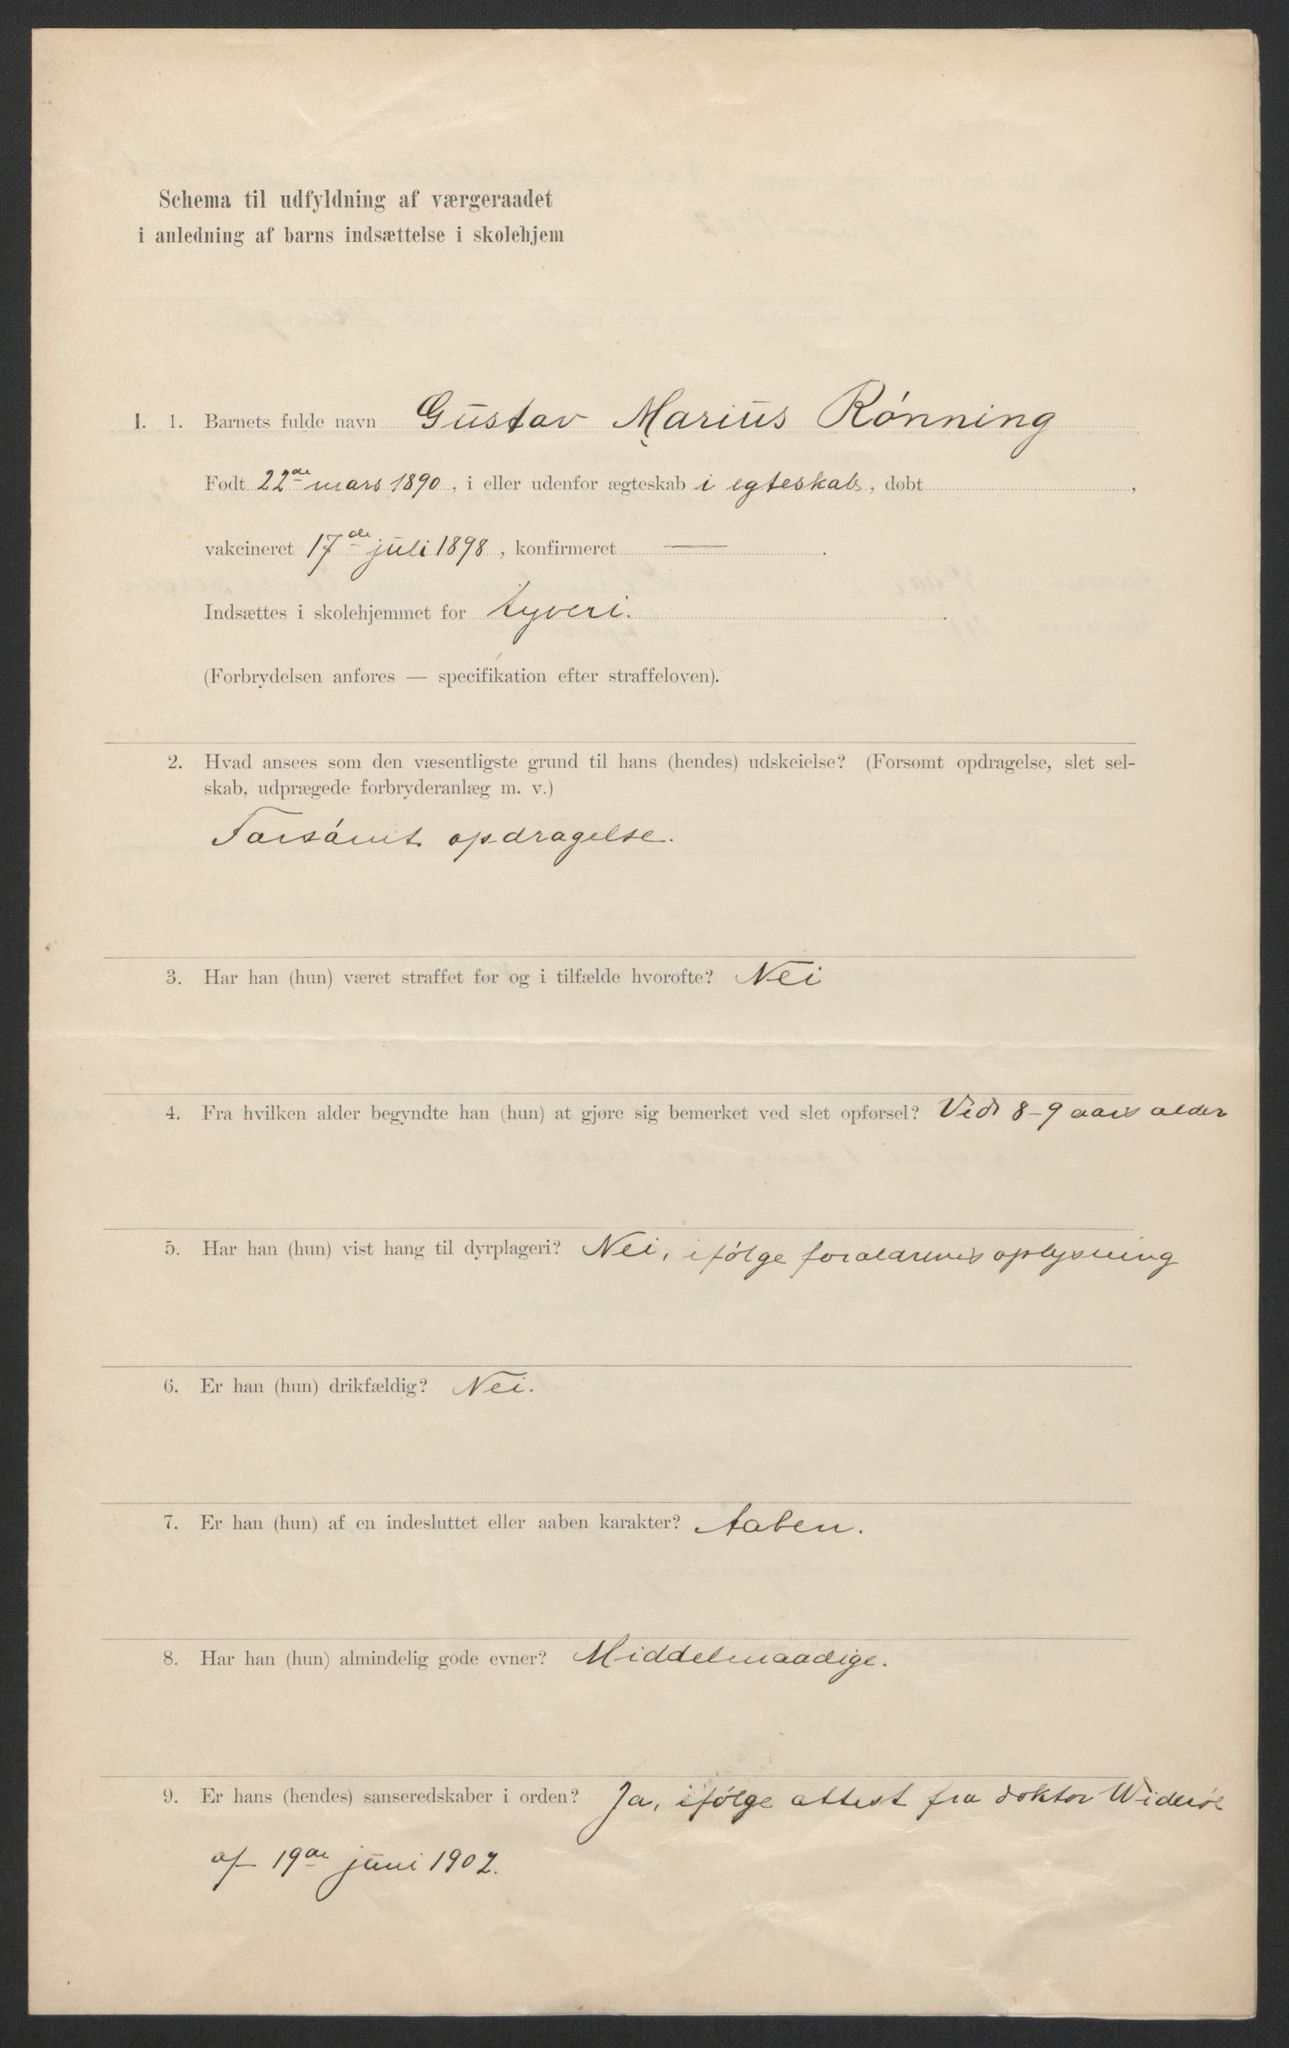 Schema til udfyldning af værgeraadet
i anledning af barns indsættelse i skolehjem
I. 1. Barnets fulde navn Gustav Marius Rønning
Født 22de mars 1890, i eller udenfor ægteskab i egteskab, døbt
vakcineret 17de juli 1898, konfirmeret —
Indsættes i skolehjemmet for tyveri.
(Forbrydelsen anføres — specifikation efter straffeloven).
2. Hvad ansees som den væsentligste grund til hans (hendes) udskeielse? (Forsømt opdragelse, slet sel-
skab, udprægede forbryderanlæg m. v.)
Forsømt opdragelse.
3. Har han (hun) været straffet før og i tilfælde hvorofte? Nei
4. Fra hvilken alder begyndte han (hun) at gjøre sig bemerket ved slet opførsel? Ved 8-9 aars alder
5. Har han (hun) vist hang til dyrplageri? Nei, ifølge forældrenes oplysning
6. Er han (hun) drikfældig? Nei.
7. Er han (hun) af en indesluttet eller aaben karakter? Aaben.
8. Har han (hun) almindelig gode evner? Middelmaadige.
9. Er hans (hendes) sanseredskaber i orden? Ja, ifølge attest fra doktor Widerøe
af 19de juni 1902.